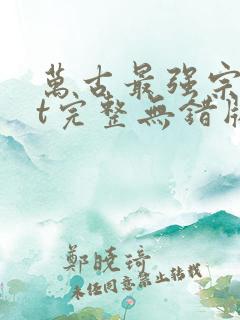 萬古最强宗
t完整無錯版
鄭曉琦
未经同意禁止转载